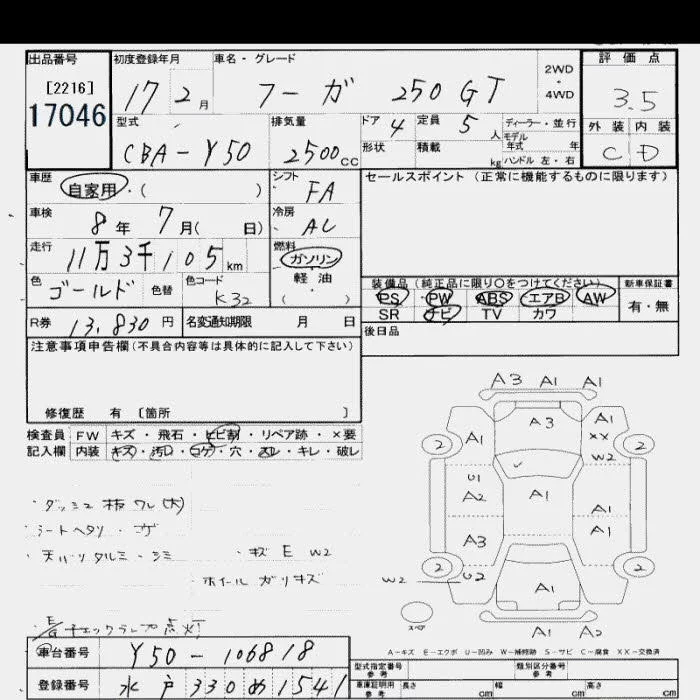 出品番号
[2216]
17046
初度登録年月
17 2月
車名・グレード
フーガ 250GT
2WD
・
4WD
評価点
3.5
外装 内装
C D
型式
CBA-Y50
排気量
2500cc
ドア 4
形状
定員 5人
積載 kg
ディーラー・並行
モデル年式 年
ハンドル 左・右
車歴
自家用・( )
シフト
FA
セールスポイント(正常に機能するものに限ります)
車検
8年 7月( 日)
冷房
AC
走行
11万3千105km
燃料
ガソリン
軽油
( )
色
ゴールド
色替
色コード
K32
装備品(純正品に限り○をつけてください)
PS PW ABS エアB AW
SR ナビ TV カワ
新車保証書
有・無
R券 13,830円
名変通知期限 月 日
後日品
注意事項申告欄(不具合内容等は具体的に記入して下さい)
修復歴 有 〔箇所 〕
検査員 FW キズ・飛石・ヒビ割・リペア跡・×要
記入欄 内装 キズ・汚レ・コゲ・穴・スレ・キレ・破レ
・ダッシュ板ワレ(大)
シートヘタリ・
・天バリタルミ・シミ
・キズ E W2
・ホイールガリキズ
エンジンチェックランプ点灯
車台番号 Y50-106818
登録番号 水戸 330 め 1541
A3 A1 A1
A3
A1
A1
XX
W2
2
2
U1
A2
A1
A1
A1
A3
2
2
W2
U2
A1
A1 A2
スペア
A-キズ E-エクボ U-凹み W-補修跡 S-サビ C-腐食 XX-交換済
型式指定番号
参考
類別区分番号
参考
車庫証明用
参考
長さ cm
幅 cm
高さ cm